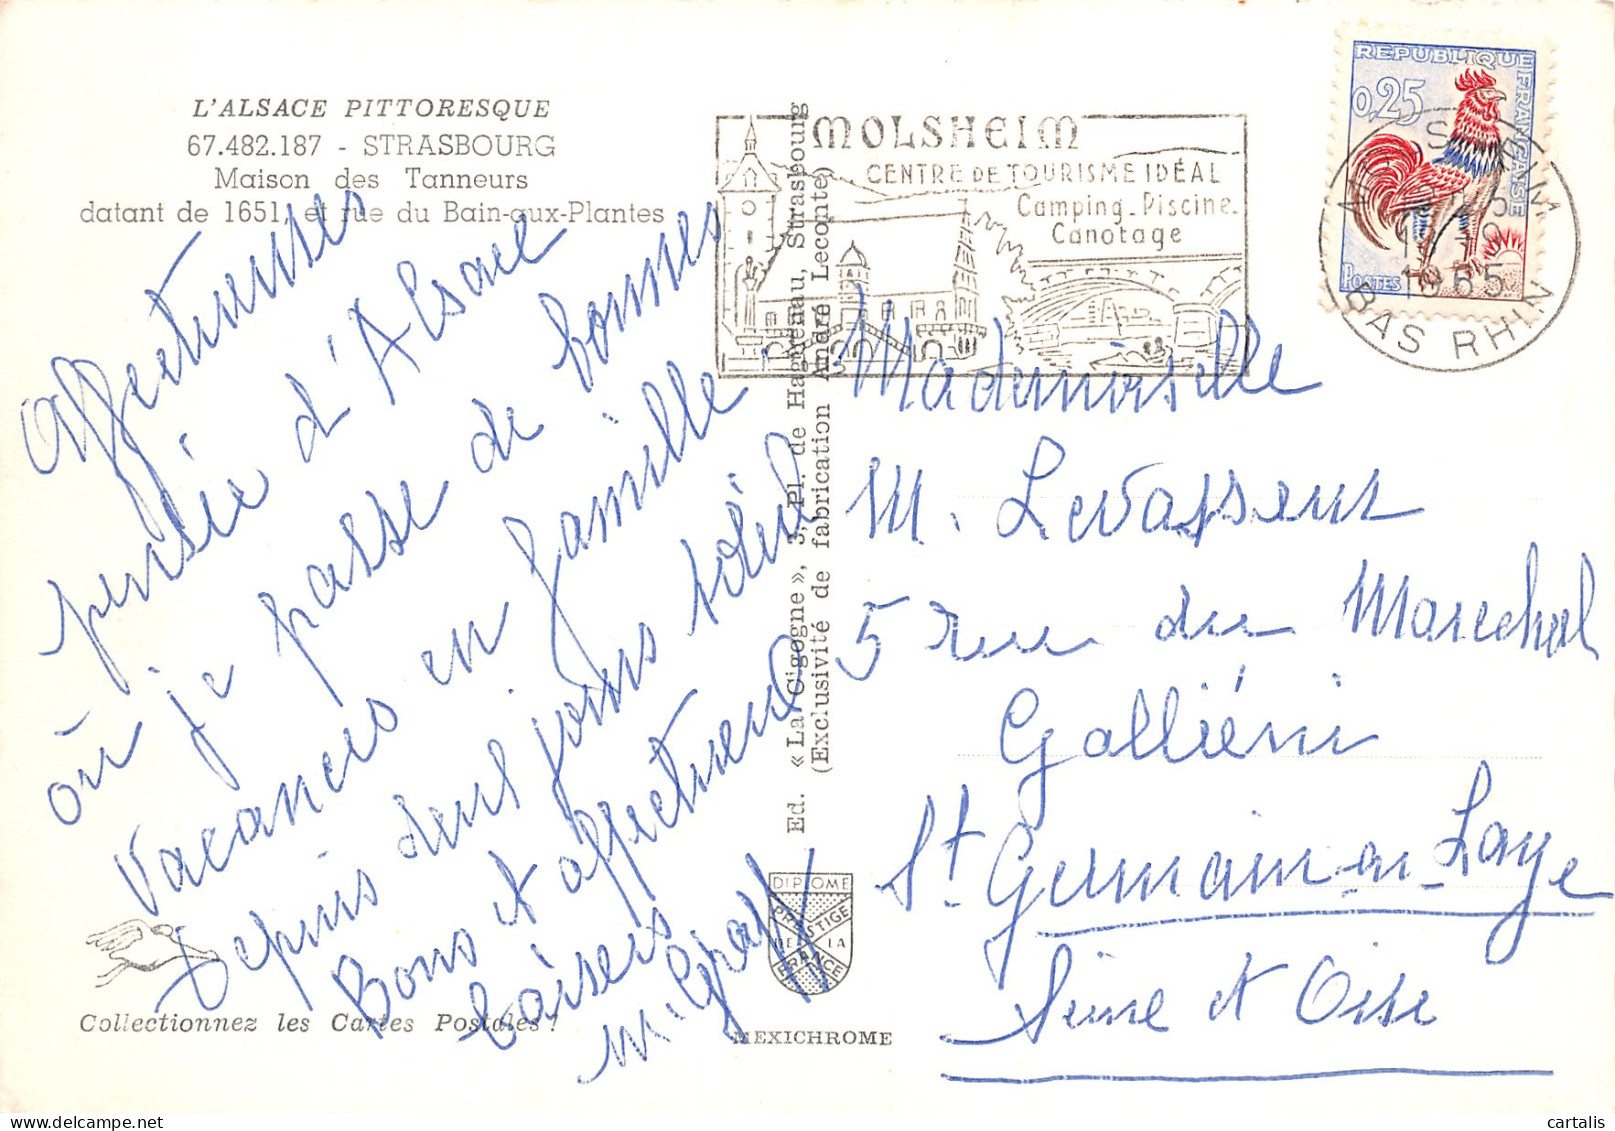 L'ALSACE PITTORESQUE
67.482.187 - STRASBOURG
Maison des Tanneurs
datant de 1651, et rue du Bain-aux-Plantes
Affectueuses
pensée d'Alsace
où je passe de bonnes
Vacances en famille
Depuis deux jours soleil
Bons et affectueux
baisers
M. Graff
Collectionnez les Cartes Postales !
Ed. « La Cigogne », 3, Pl. de Haguenau, Strasbourg
(Exclusivité de fabrication André Leconte)
DIPLOME
PRESTIGE
DE LA
FRANCE
MEXICHROME
MOLSHEIM
CENTRE DE TOURISME IDÉAL
Camping-Piscine-
Canotage
REPUBLIQUE FRANÇAISE
0,25
POSTES
MOLSHEIM
1965
BAS RHIN
Mademoiselle
M. Levasseur
5 rue du Marechal
Galliéni
St Germain-en-Laye
Seine et Oise
cartalis